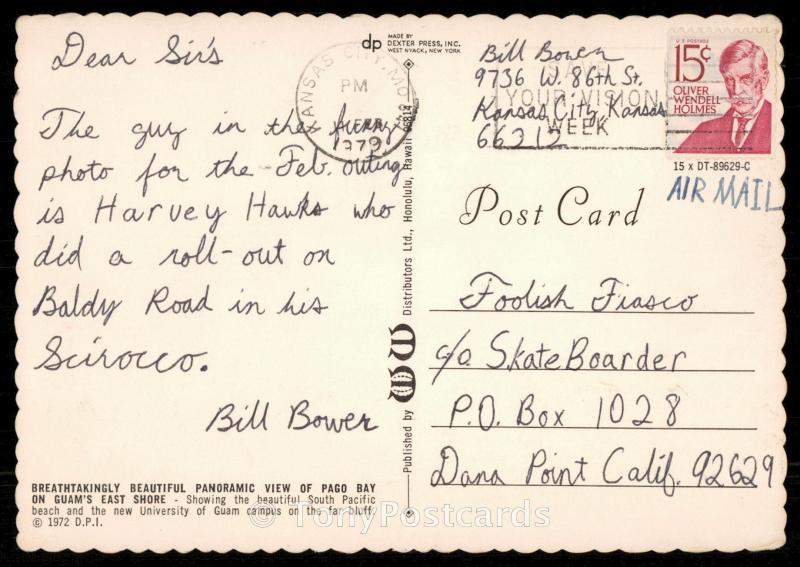 Dear Sir's
The guy in the funny
photo for the Feb. outings
is Harvey Hawks who
did a roll-out on
Baldy Road in his
Scirocco.
Bill Bower
BREATHTAKINGLY BEAUTIFUL PANORAMIC VIEW OF PAGO BAY
ON GUAM'S EAST SHORE - Showing the beautiful South Pacific
beach and the new University of Guam campus on the far bluff.
© 1972 D.P.I.
dp MADE BY
DEXTER PRESS, INC.
WEST NYACK, NEW YORK
Published by WW Distributors Ltd., Honolulu, Hawaii 96814
KANSAS CITY, MO
PM
1979
Bill Bower
9736 W. 86th St.
Kansas City, Kansas
66212
YOUR VISION
WEEK
U.S. POSTAGE
15¢
OLIVER
WENDELL
HOLMES
15 x DT-89629-C
AIR MAIL
Post Card
Foolish Fiasco
c/o SkateBoarder
P.O. Box 1028
Dana Point Calif. 92629
© TonyPostcards